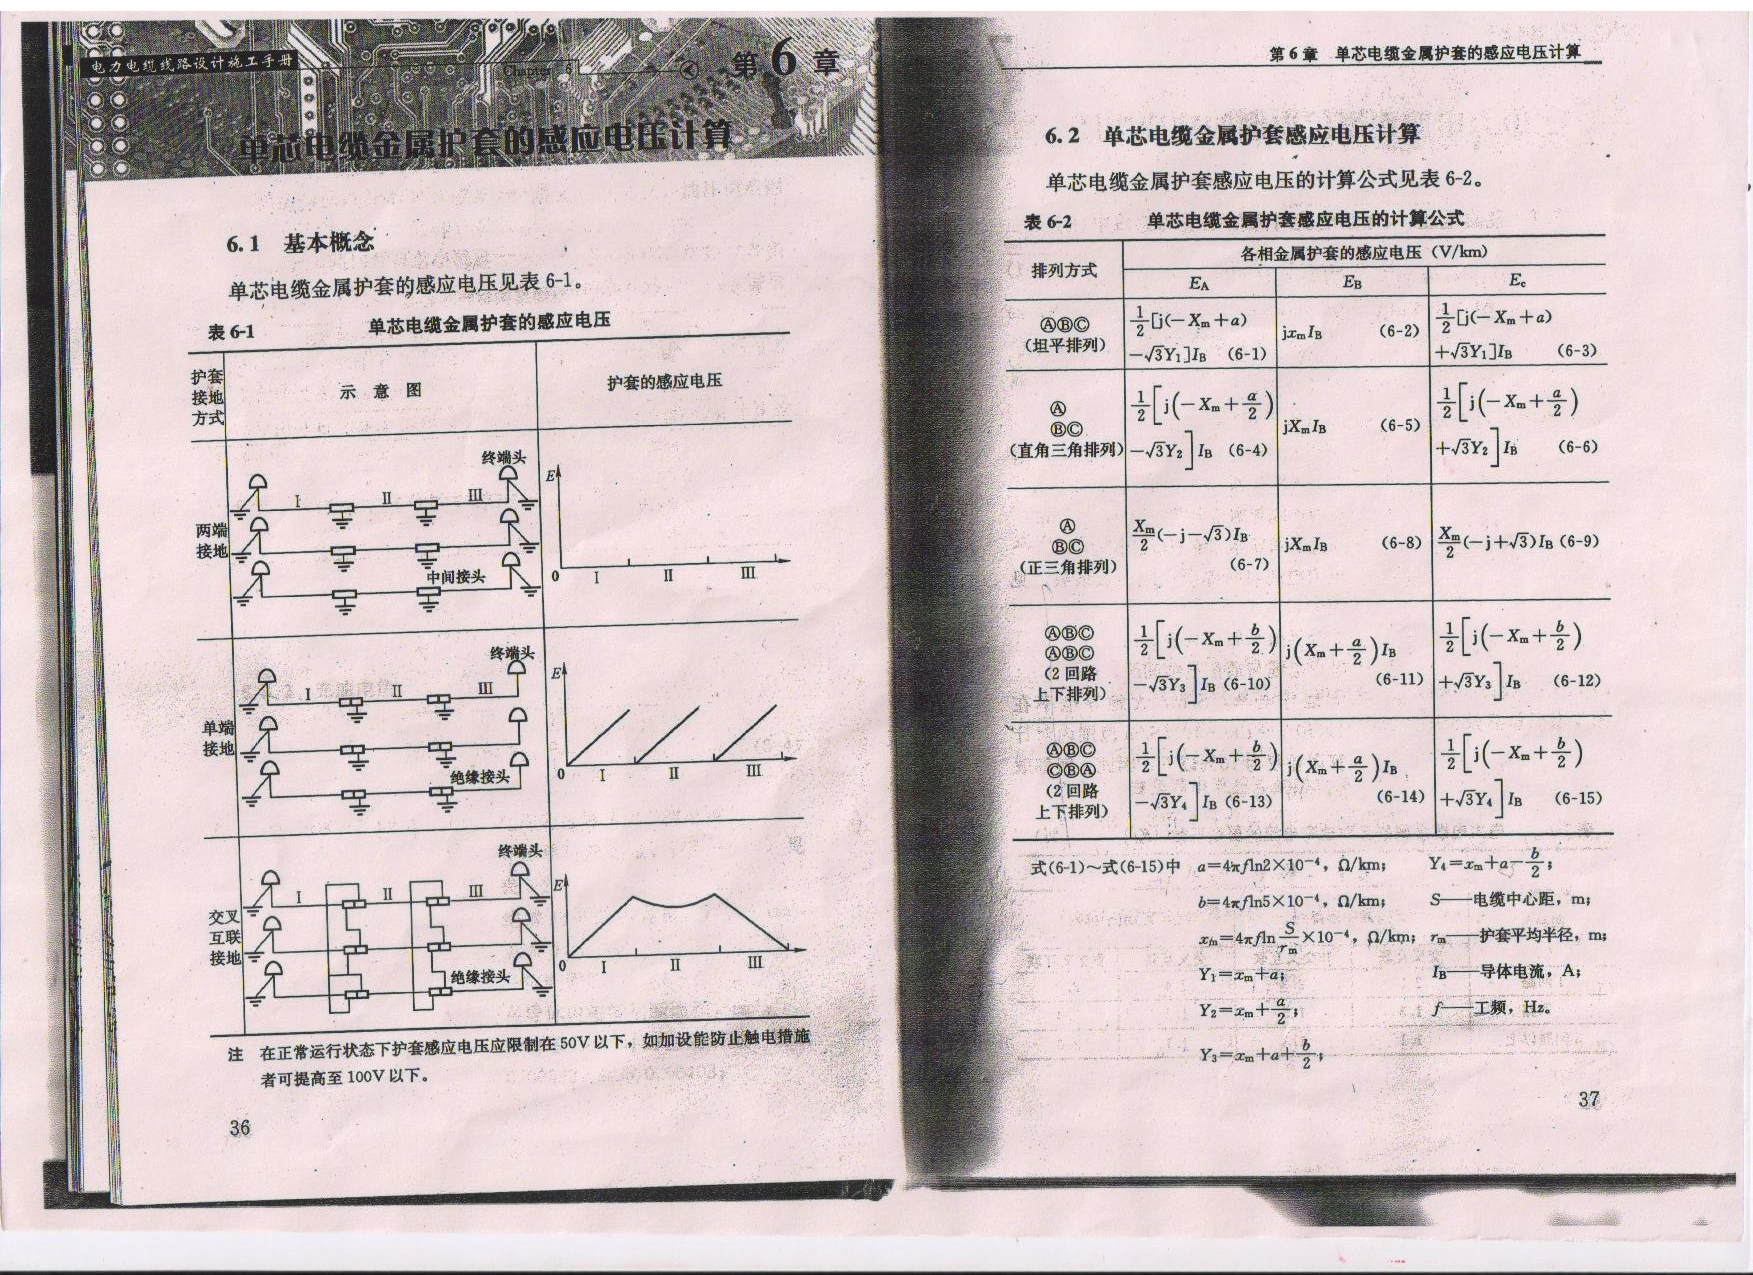 电力电缆线路设计施工手册
Chapter 6
第6章
单芯电缆金属护套的感应电压计算
6.1 基本概念
单芯电缆金属护套的感应电压见表6-1。
表6-1 单芯电缆金属护套的感应电压
护套接地方式 示意图 护套的感应电压
两端接地 终端头 中间接头 I II III E 0 I II III
单端接地 终端头 绝缘接头 I II III E 0 I II III
交叉互联接地 终端头 绝缘接头 I II III E 0 I II III
注 在正常运行状态下护套感应电压应限制在50V以下，如加设能防止触电措施
者可提高至100V以下。
36
第6章 单芯电缆金属护套的感应电压计算
6.2 单芯电缆金属护套感应电压计算
单芯电缆金属护套感应电压的计算公式见表6-2。
表6-2 单芯电缆金属护套感应电压的计算公式
排列方式 各相金属护套的感应电压（V/km）
E_A E_B E_c
ⒶⒷⒸ（坦平排列） 1/2[j(-X_m+a)-√3Y_1]I_B (6-1) jx_mI_B (6-2) 1/2[j(-X_m+a)+√3Y_1]I_B (6-3)
Ⓐ ⒷⒸ（直角三角排列） 1/2[j(-X_m+a/2)-√3Y_2]I_B (6-4) jX_mI_B (6-5) 1/2[j(-X_m+a/2)+√3Y_2]I_B (6-6)
Ⓐ ⒷⒸ（正三角排列） X_m/2(-j-√3)I_B (6-7) jX_mI_B (6-8) X_m/2(-j+√3)I_B (6-9)
ⒶⒷⒸ ⒶⒷⒸ（2回路上下排列） 1/2[j(-X_m+b/2)-√3Y_3]I_B (6-10) j(X_m+a/2)I_B (6-11) 1/2[j(-X_m+b/2)+√3Y_3]I_B (6-12)
ⒶⒷⒸ ⒸⒷⒶ（2回路上下排列） 1/2[j(-X_m+b/2)-√3Y_4]I_B (6-13) j(X_m+a/2)I_B (6-14) 1/2[j(-X_m+b/2)+√3Y_4]I_B (6-15)
式(6-1)～式(6-15)中 a=4πfln2×10⁻⁴，Ω/km； Y_4=x_m+a-b/2；
b=4πfln5×10⁻⁴，Ω/km； S——电缆中心距，m；
x_m=4πfln S/r_m×10⁻⁴，Ω/km； r_m——护套平均半径，m；
Y_1=x_m+a； I_B——导体电流，A；
Y_2=x_m+a/2； f——工频，Hz。
Y_3=x_m+a+b/2；
37